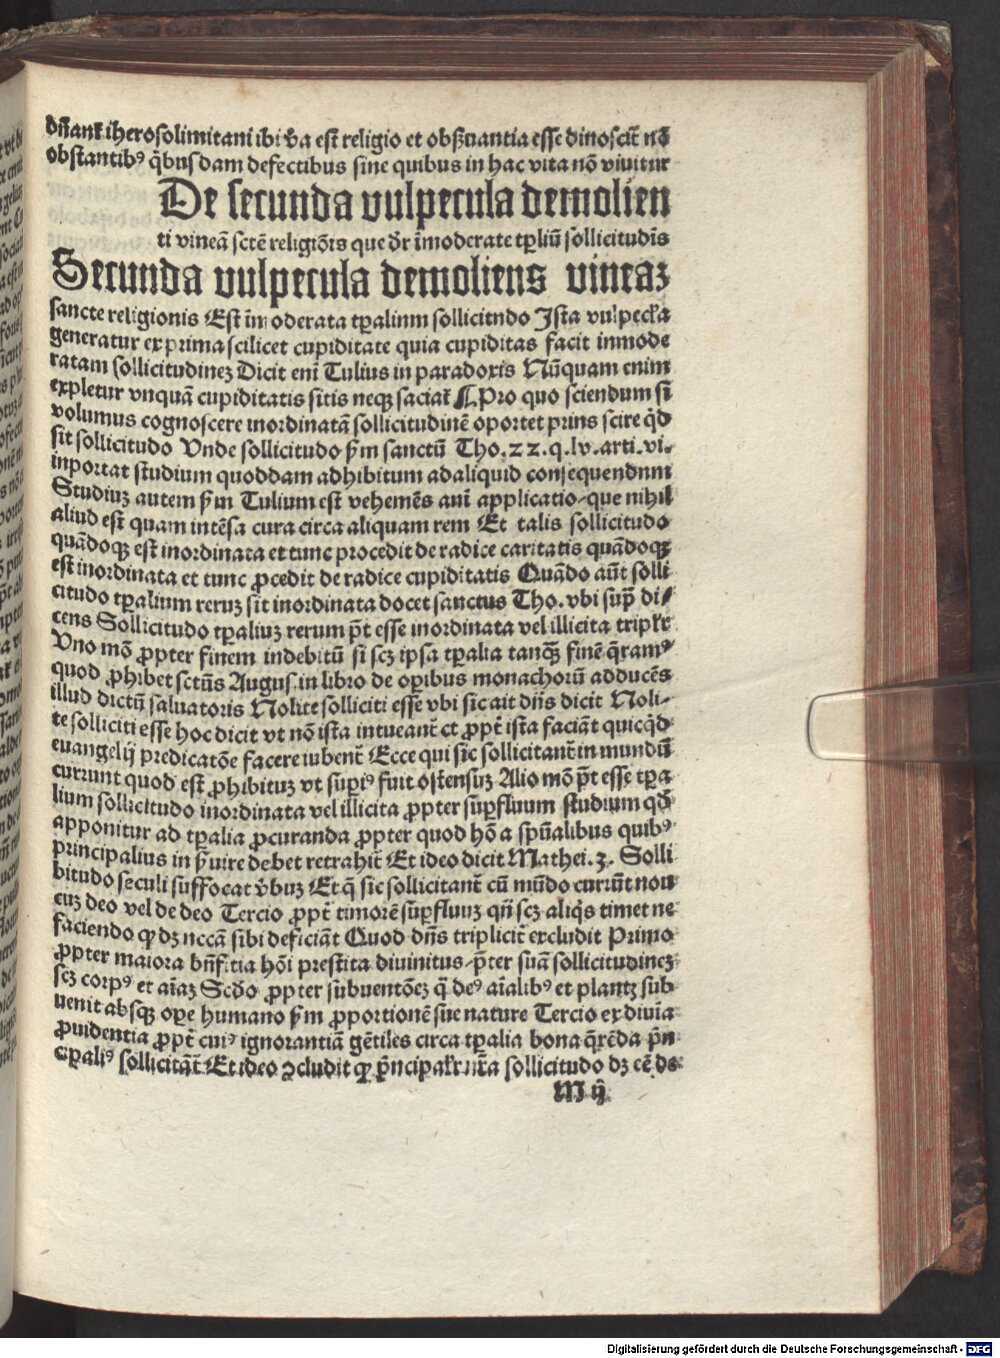 dn̄ant᷑ iherosolimitani ibi v̄a est religio et obs̄uantia esse dinoscit᷑ nō
obstantibꝰ q̇busdam defectibus sine quibus in hac vita nō viuitur
De secunda vulpecula demolien
ti vineā sctē religiōis que dr̄ īmoderate tꝑliū sollicitudīs
Secunda vulpecula demoliens vineaꝫ
sancte religionis Est īmoderata tꝑalium sollicitudo Ista vulpecl̄a
generatur ex prima scilicet cupiditate quia cupiditas facit inmode
ratam sollicitudineꝫ Dicit eni᷒ Tulius in paradoxis Nūquam enim
expletur vnquā cupiditatis sitis neqꝫ saciat᷑ ¶ Pro quo sciendum si
volumus cognoscere inordinatā sollicitudinē oportet prius scire qd̄
sit sollicitudo Unde sollicitudo ẜm sanctū Tho. 22. q. lv. arti. vi.
inportat studium quoddam adhibitum ad aliquid consequendum
Studiuꝫ autem ẜm Tulium est vehemēs ani᷒ applicatio que nihil
aliud est quam intēsa cura circa aliquam rem Et talis sollicitudo
quādoqꝫ est inordinata et tunc procedit de radice caritatis quādoqꝫ
est inordinata et tunc ꝓcedit de radice cupiditatis Quādo aūt solli
citudo tꝑalium reruꝫ sit inordinata docet sanctus Tho. vbi sup̄ di/
cens Sollicitudo tꝑaliuꝫ rerum pt̄ esse inordinata vel illicita triplr̄
Uno mō ꝓpter finem indebitū si scꝫ ipsa tꝑalia tanqꝫ finē q̄ramꝰ
quod ꝓhibet sctūs Augus. in libro de oꝑibus monachorū adducēs
illud dictū saluatoris Nolite solliciti esse vbi sic ait dn̄s dicit Noli/
te solliciti esse hoc dicit vt nō ista intueant᷑ et ꝓpt᷑ ista faciāt quicqd̄
euangelij predicatōe facere iubent᷑ Ecce qui sic sollicitant᷑ in mundū
currunt quod est ꝓhibituꝫ vt suꝑiꝰ fuit ostensuꝫ Alio mō pt̄ esse tꝑa
lium sollicitudo inordinata vel illicita ꝓpter suꝑfluum studium qd̄
apponitur ad tꝑalia ꝓcuranda ꝓpter quod hō a spūalibus quibꝰ
principalius inẜuire debet retrahit᷑ Et ideo dicit Mathei. 3. Solli
bitudo seculi suffocat v̄buꝫ Et q̄ sic sollicitant᷑ cū mūdo currūt non
cuꝫ deo vel de deo Tercio ꝓpt᷑ timorē suꝑfluuꝫ qn̄ scꝫ aliq̇s timet ne
faciendo ꝙ dꝫ nccām sibi deficiāt Quod dn̄s triplicit᷑ excludit Primo
ꝓpter maiora bn̄ficia hōi prestita diuinitus p̄ter suā sollicitudineꝫ
scꝫ corpꝰ et aīaꝫ Scd̄o ꝓpter subuentōeꝫ q̄ deꝰ aīalibꝰ et plantꝫ sub
uenit absqꝫ oꝑe humano ẜm ꝓportionē sue nature Tercio ex diuīa
ꝓuidentia ꝓpt᷑ cuiꝰ ignorantiā gētiles circa tꝑalia bona q̄rēda p̄n
ciꝑaliꝰ sollicitāt᷑ Et ideo ꝯcludit ꝙ p̄ncipal᷑r nr̄a sollicitudo dꝫ eē de
M ij
Digitalisierung gefördert durch die Deutsche Forschungsgemeinschaft - DFG